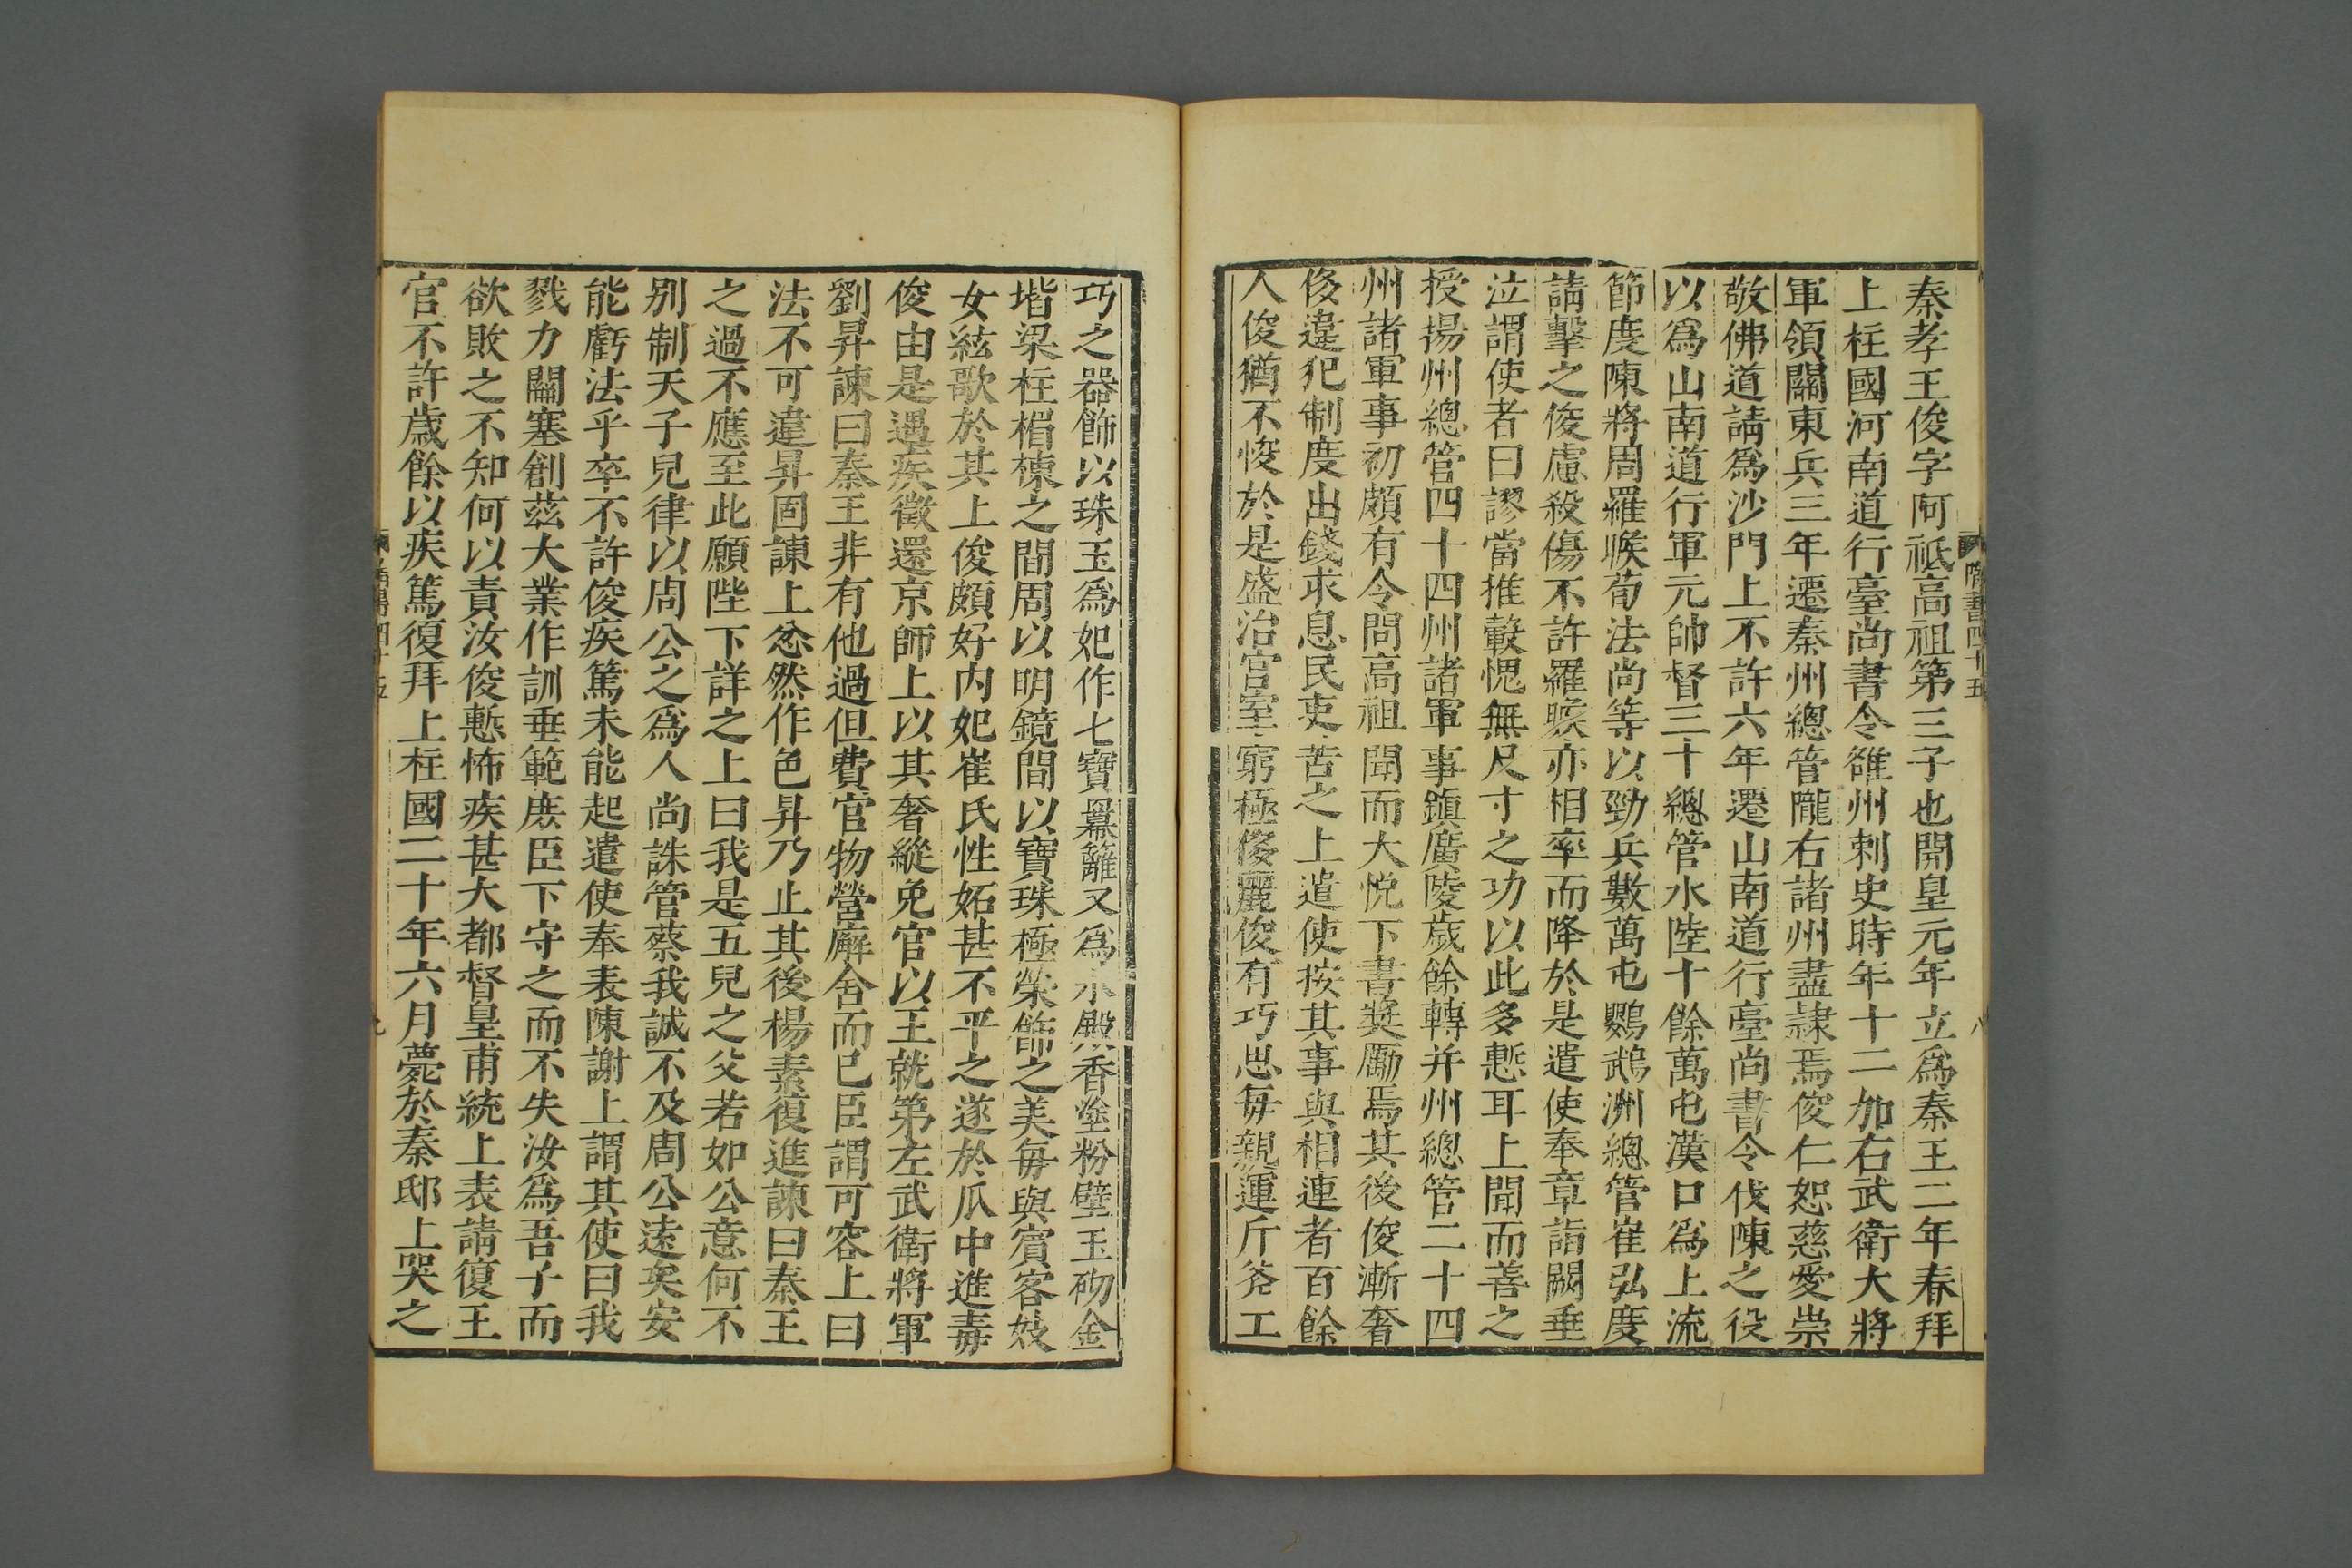 秦孝王俊字阿祗高祖第三子也開皇元年立爲秦王二年春拜
上柱國河南道行臺尚書令雒州刺史時年十二加右武衛大將
軍領關東兵三年遷秦州總管隴右諸州盡隷焉俊仁恕慈愛崇
敬佛道請爲沙門上不許六年遷山南道行臺尚書令伐陳之役
以爲山南道行軍元帥督三十總管水陸十餘萬屯漢口爲上流
節度陳將周羅㬋荀法尚等以勁兵數萬屯鸚鵡洲總管崔弘度
請擊之俊慮殺傷不許羅㬋亦相率而降於是遣使奉章詣闕垂
泣謂使者曰謬當推轂愧無尺寸之功以此多慙耳上聞而善之
授揚州總管四十四州諸軍事鎮廣陵歲餘轉并州總管二十四
州諸軍事初頗有令問高祖聞而大悅下書奬勵焉其後俊漸奢
侈違犯制度出錢求息民吏苦之上遣使按其事與相連者百餘
人俊猶不悛於是盛治宮室窮極侈麗俊有巧思每親運斤斧工
巧之器飾以珠玉爲妃作七寶羃籬又爲水殿香塗粉壁玉砌金
堦梁柱楣棟之間周以明鏡間以寶珠極榮飾之美每與賓客妓
女絃歌於其上俊頗好内妃崔氏性妬甚不平之遂於瓜中進毒
俊由是遇疾徵還京師上以其奢縱免官以王就第左武衛將軍
劉昇諫曰秦王非有他過但費官物營廨舍而已臣謂可容上曰
法不可違昇固諫上忿然作色昇乃止其後楊素復進諫曰秦王
之過不應至此願陛下詳之上曰我是五兒之父若如公意何不
别制天子兒律以周公之爲人尚誅管蔡我誠不及周公遠矣安
能虧法乎卒不許俊疾篤未能起遣使奉表陳謝上謂其使曰我
戮力關塞創兹大業作訓垂範庶臣下守之而不失汝爲吾子而
欲敗之不知何以責汝俊慙怖疾甚大都督皇甫統上表請復王
官不許歲餘以疾篤復拜上柱國二十年六月薨於秦邸上哭之
隋書四十五
八
九